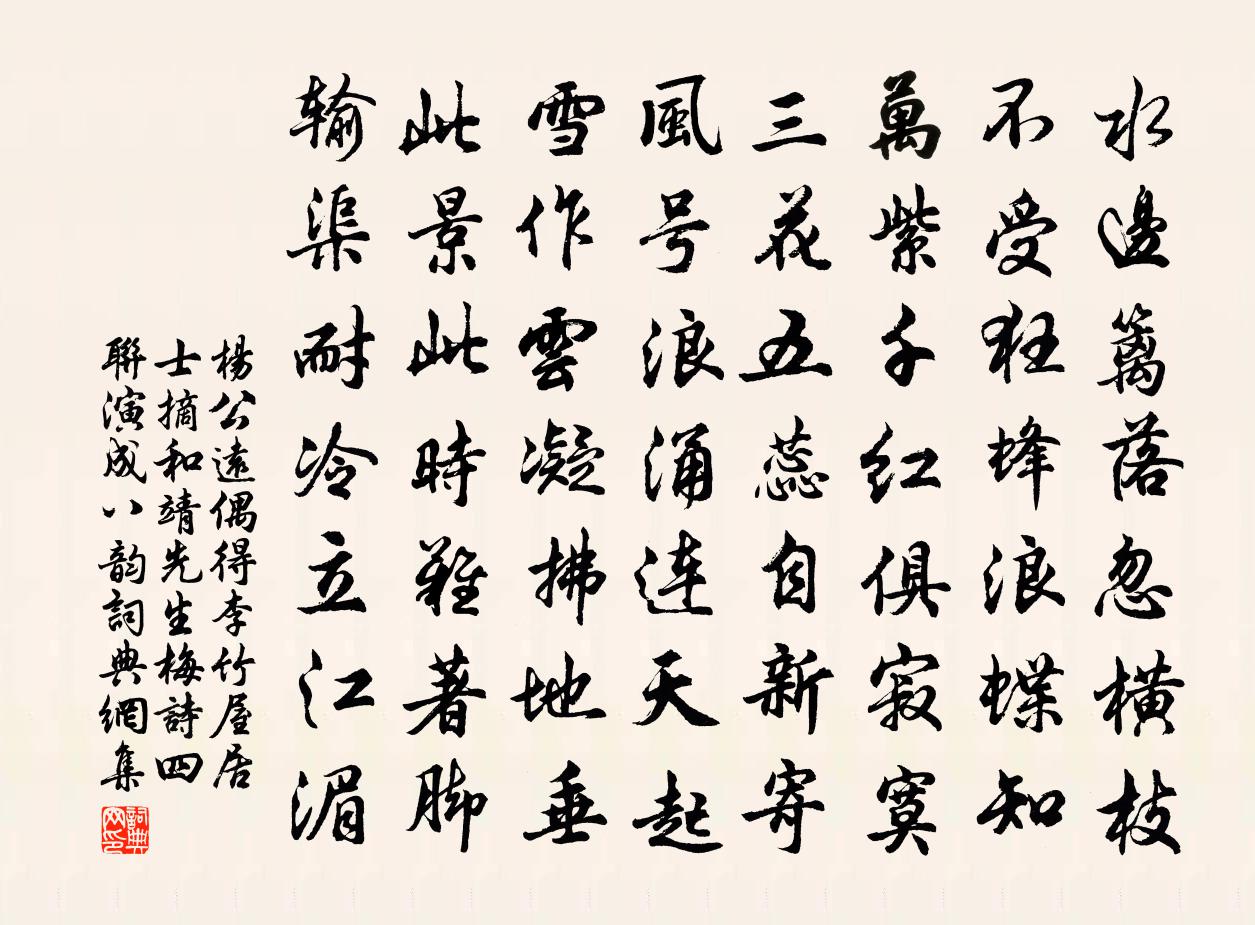 水邊籬落忽横枝
不受狂蜂浪蝶知
萬紫千红俱寂寞
三花五蕊自新寄
風号浪涌连天起
雪作雲凝拂地垂
此景此時難著脚
输渠耐冷立江湄
楊公遠偶得李竹屋居
士摘和靖先生梅詩四
聯演成八韵詞典網集
詞典
网印